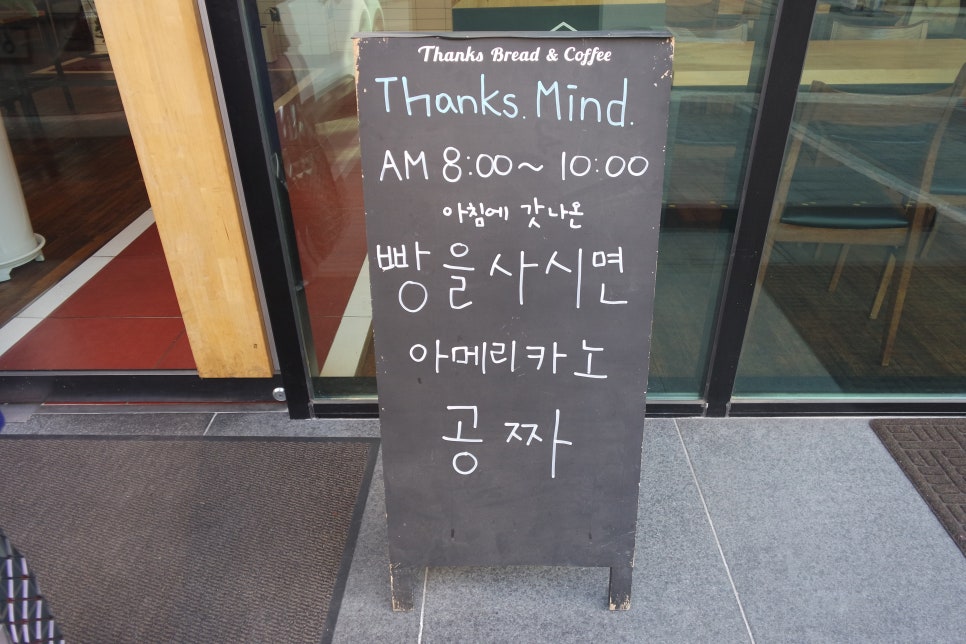 Thanks Bread & Coffee
Thanks. Mind.
AM 8:00~ 10:00
아침에 갓 나온
빵을 사시면
아메리카노
공짜